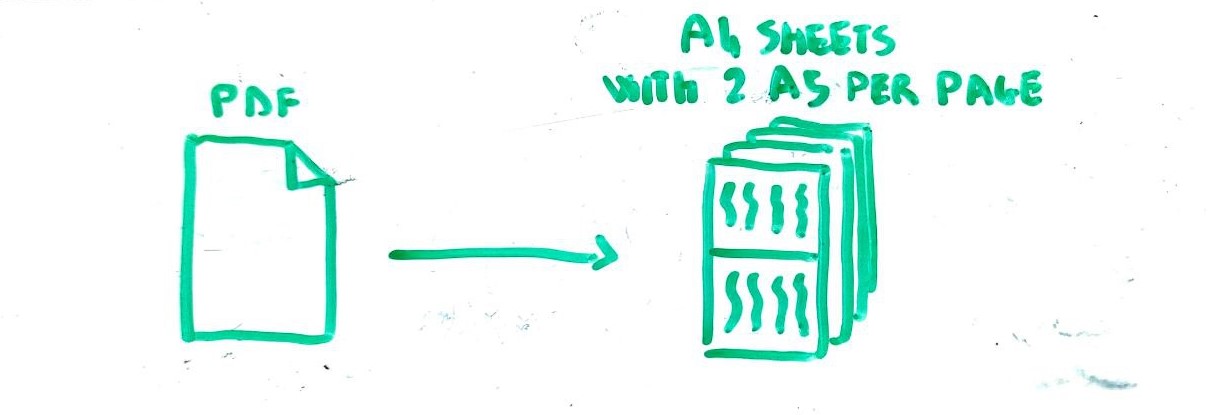 PDF
A4 SHEETS
WITH 2 A5 PER PAGE